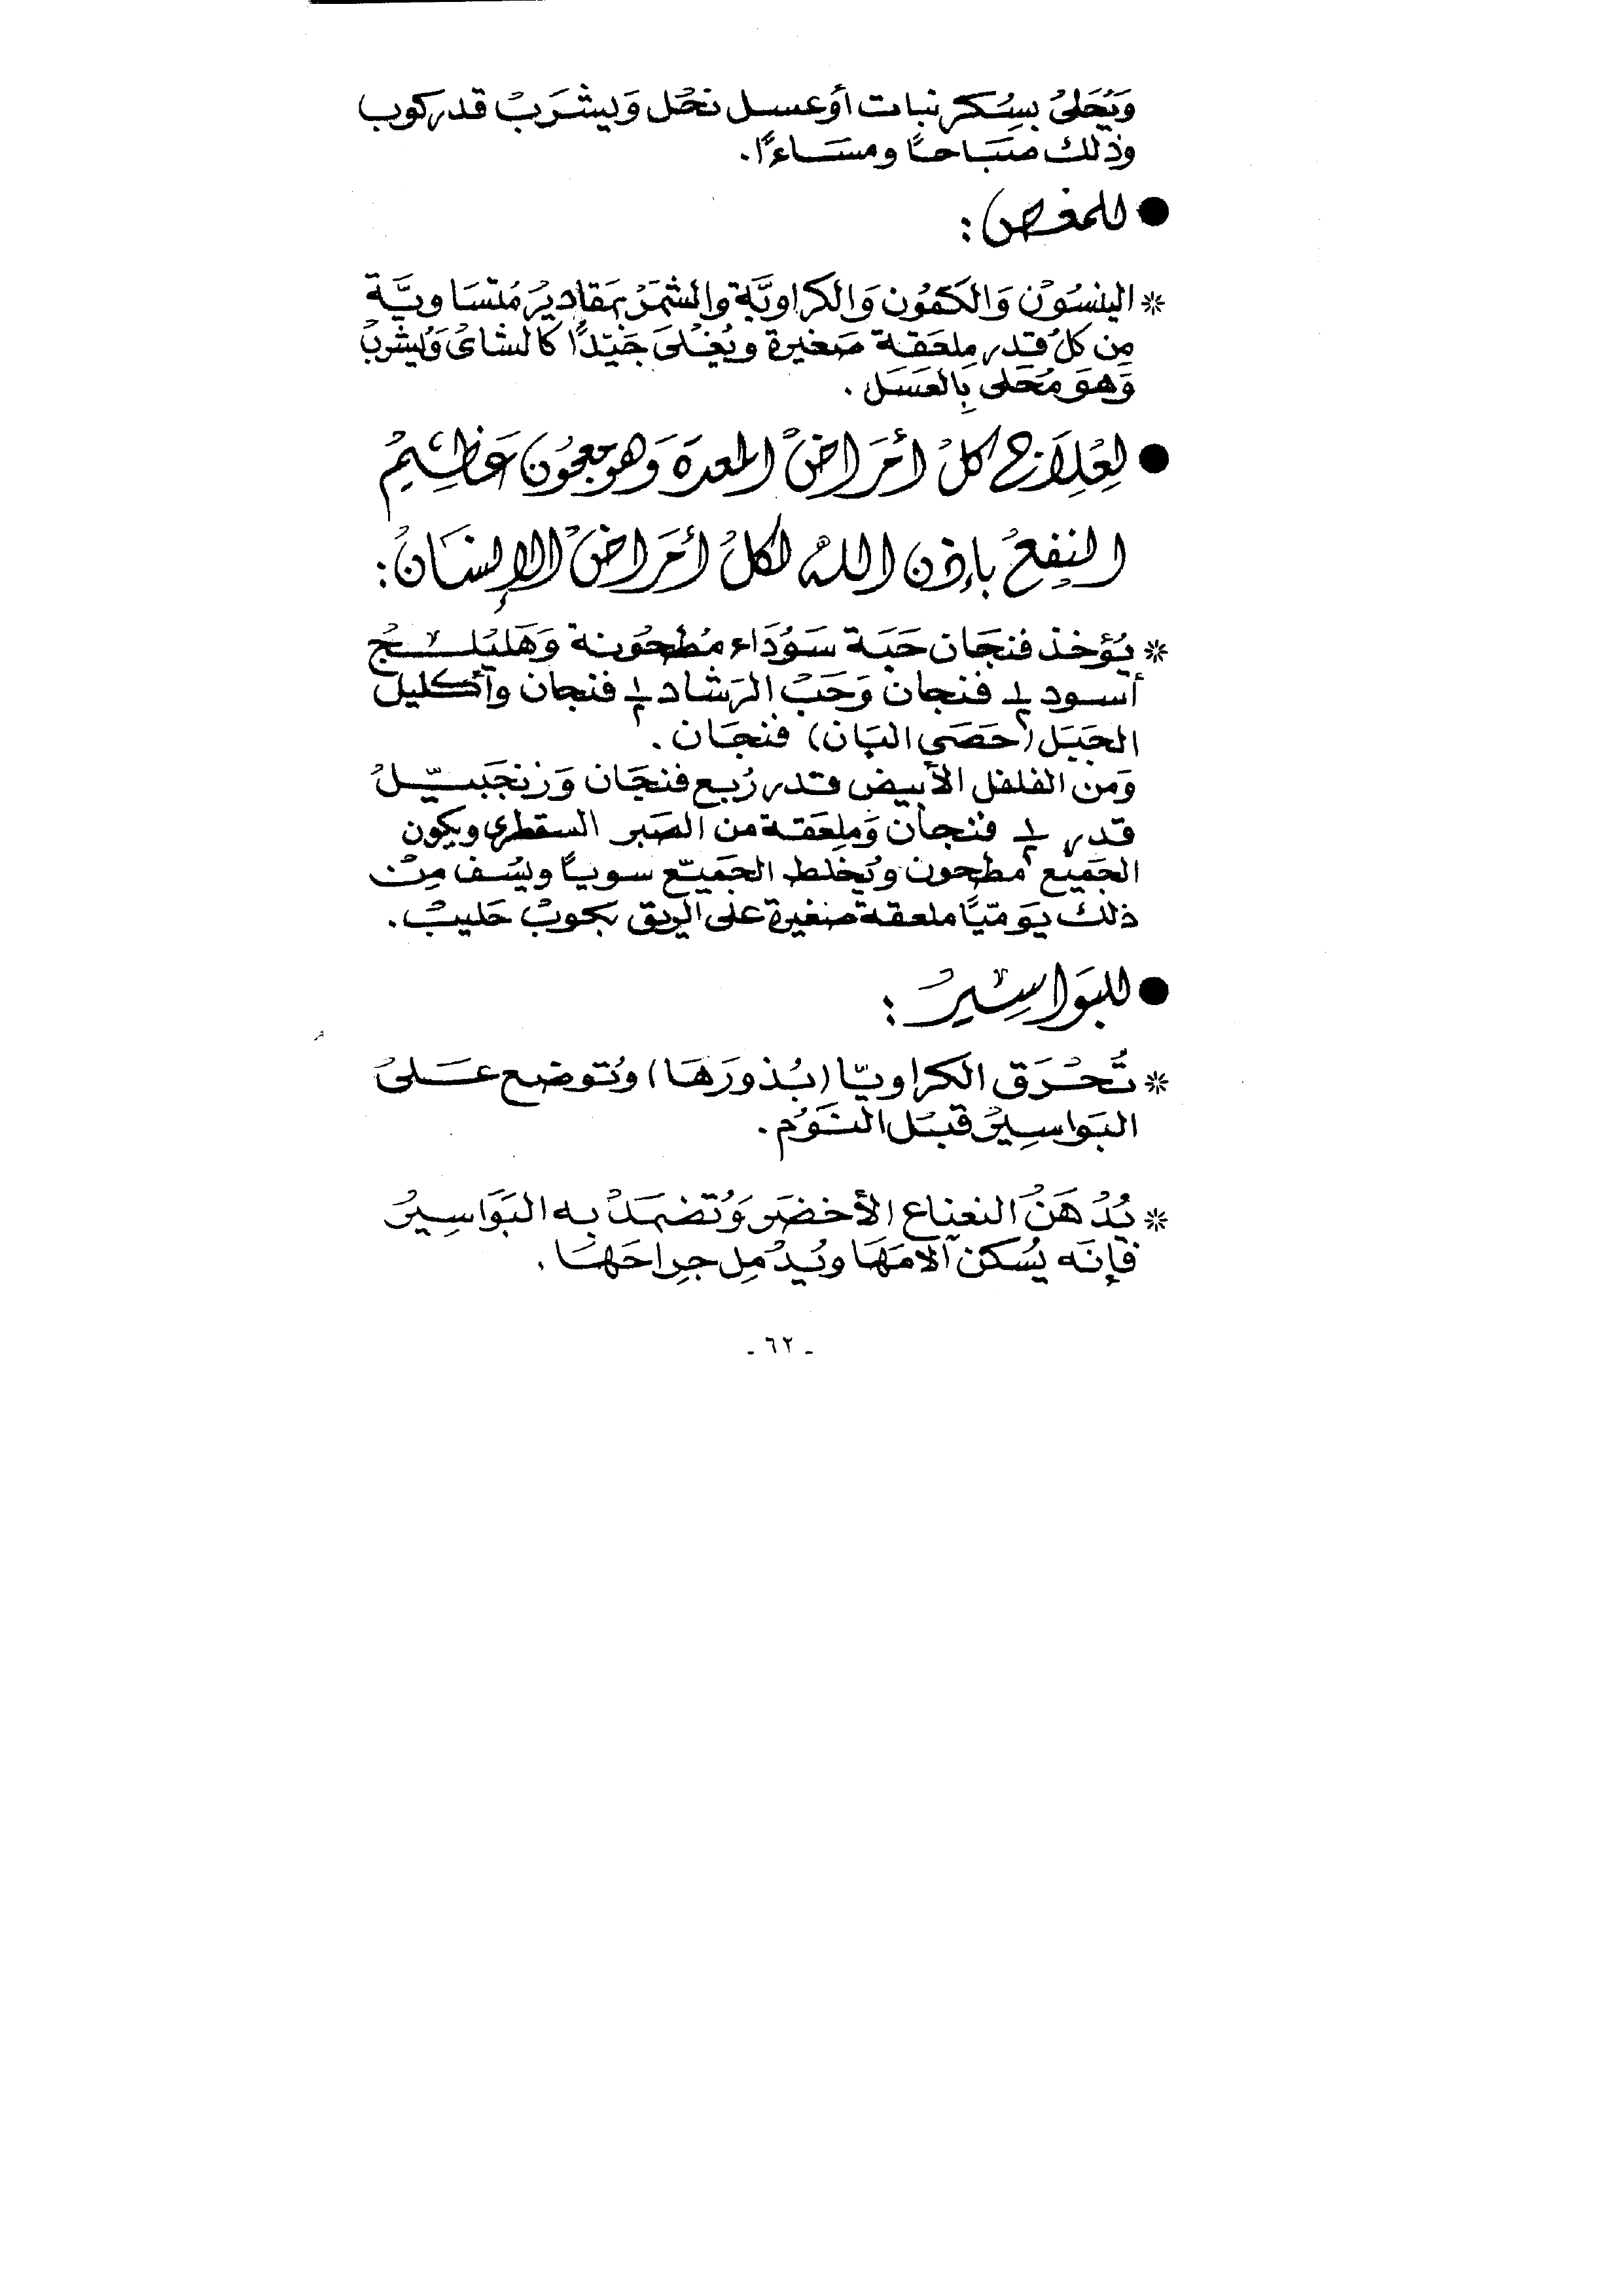 وَيُحَلىْ بسُكر نبات أو عسل نحْل وَيشرَبْ قدر كوب
وذلك صَبَاحًا ومسَاءًا.
● للمغص :
* الينسُوْن وَالكمُون وَالكراويَّة والشمَرْ بمَقاديرْ مُتسَاويَّة
مِن كلْ قدر مِلعَقة صَغيرة ويُغْلىَ جَيّدًا كالشاىْ وَيُشربْ
وَهوَ مُحَلى بِالعَسَل .
● لِعْلِاَج كلْ أمَراضْ المعدة وَهو معجُون عَظيمْ
النِفعْ بإذن اللهْ لكلْ أمَراضْ الإنسَانْ :
* يُؤخذ فنجَان حَبَة سَوُدَاء مُطحُونة وَهَليْلــجْ
أسود ١/٢ فنجان وَحَبْ الرَشاد ١/٢ فنجان وأكليل
الجَبَل (حَصَى البَان) فنجَان .
وَمن الفلفل الأبيض قدر رُبع فنجَان وَزنجَبيّلْ
قدر ١/٢ فنجان وَمِلعَقة من الصَبر السقطرى ويكون
الجَميع مطحون ويُخلط الجَميّع سوياً ويسُف مِنْ
ذلك يَومّيًا ملعقة صَغيرة على الريق بكوبْ حَليبْ .
● للبَواسِيرْ :
* تُحْرَق الكراويّا (بُذورَهَا) وتُوضع عَــلىْ
البَواسِيرْ قبَل النَوُم .
* يُدْهَنْ النعناع الأخضَر وَتُضمَدْ به البَوَاسِيرْ
فإنَه يُسَكن آلامَهَا ويُدْمِل جِراحَهَا .
- ٦٢ -